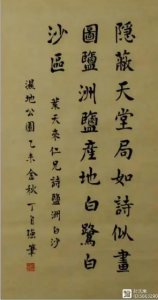 隱蔽天堂局如詩似畫
圖鹽洲鹽産地白鷺白
沙區
葉天來仁兄詩鹽洲白沙
濕地公園乙未金秋丁自強筆